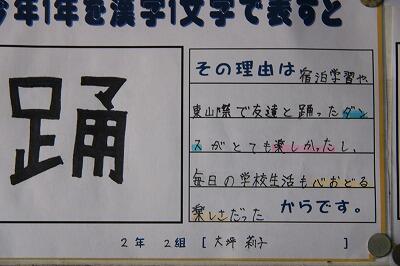 今年1年を漢字1文字で表すと
踊
その理由は 宿泊学習や、
東山祭で友達と踊ったダン
スがとても楽しかったし、
毎日の学校生活も心おどる
楽しさだった からです。
2年 2組 [大坪 莉子 ]